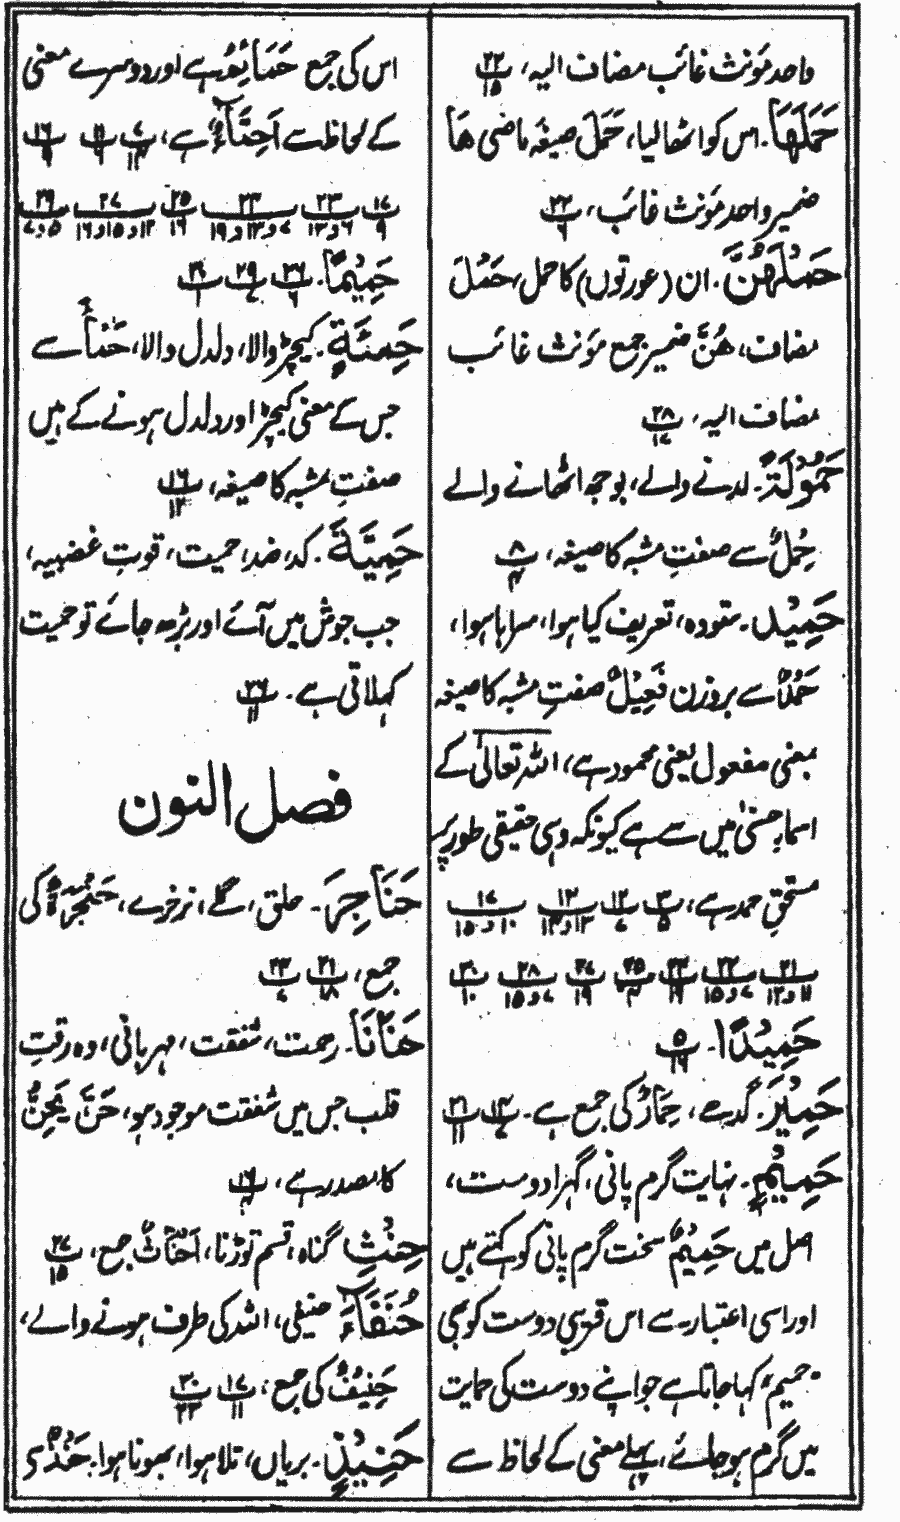 واحد مؤنث غائب مضاف الیہ، ۲۲/۱۵
حَمَلَهَا۔ اس کو اٹھا لیا، حَمَلَ صیغہ ماضی هَا
ضمیر واحد مؤنث غائب، ۲۲/۶
حَمْلَهُنَّ۔ ان (عورتوں) کا حمل، حَمْلَ
مضاف، هُنَّ ضمیر جمع مؤنث غائب
مضاف الیہ، ۲۸/۱۷
حَمُوْلَةً۔ لدنے والے، بوجھ اٹھانے والے
حِمْلٌ سے صفتِ مشبہ کا صیغہ، ۸/۴
حَمِيْد۔ ستودہ، تعریف کیا ہوا، سراہا ہوا،
حَمْدٌ سے بروزن فَعِيْلٌ صفتِ مشبہ کا صیغہ
بمعنی مفعول یعنی محمود ہے، اللہ تعالیٰ کے
اسماء حسنٰی میں سے ہے کیونکہ وہی حقیقی طور پر
مستحقِ حمد ہے، ۳/۵ ۱۲/۷ ۱۳/۱۳و۱۴ ۱۷/۱۰و۱۵
۲۱/۱۱و۱۲ ۲۲/۷و۱۵ ۲۴/۱۹ ۲۵/۴ ۲۷/۱۹ ۲۸/۷و۱۵ ۳۰/۱۰
حَمِيْدًا۔ ۵/۱۶
حَمِيْرَ۔ گدھے، حِمَارٌ کی جمع ہے۔ ۱۴/۷ ۲۱/۱۱
حَمِيْمٍ۔ نہایت گرم پانی، گہرا دوست،
اصل میں حَمِيْمٌ سخت گرم پانی کو کہتے ہیں
اور اسی اعتبار سے اس قریبی دوست کو بھی
"حمیم" کہا جاتا ہے جو اپنے دوست کی حمایت
میں گرم ہو جائے، پہلے معنی کے لحاظ سے
اس کی جمع حَمَائِمُ ہے اور دوسرے معنی
کے لحاظ سے اَحِمَّاءُ ہے، ۷/۱۴ ۱۱/۹ ۱۶/۹
۱۷/۹ ۲۳/۶و۱۳ ۲۳/۷و۱۳و۱۹ ۲۵/۱۶ ۲۷/۱۴و۱۵و۱۶ ۲۹/۵و۷
حَمِيْمًا۔ ۲۶/۶ ۲۹/۷ ۳۰/۱
حَمِئَةٍ۔ کیچڑ والا، دلدل والا، حَمْأٌ سے
جس کے معنی کیچڑ اور دلدل ہونے کے ہیں
صفتِ مشبہ کا صیغہ، ۱۶/۱۲
حَمِيَّةَ۔ کد، ضد، حمیت، قوتِ غضبیہ،
جب جوش میں آئے اور بڑھ جائے تو حمیت
کہلاتی ہے۔ ۲۶/۱۱
فصل النون
حَنَاجِرَ۔ حلق، گلے، نرخرے، حَنْجَرَةٌ کی
جمع، ۲۱/۱۸ ۲۴/۷
حَنَانًا۔ رحمت، شفقت، مہربانی، وہ رقتِ
قلب جس میں شفقت موجود ہو، حَنَّ يَحِنُّ
کا مصدر ہے، ۱۶/۴
حِنْثِ گناہ، قسم توڑنا، اَحْنَاثٌ جمع، ۲۷/۱۵
حُنَفَاءَ حنیفی، اللہ کی طرف ہونے والے،
حَنِيْفٌ کی جمع، ۱۷/۱۱ ۳۰/۲۳
حَنِيْذٍ۔ بریاں، تلا ہوا، بھونا ہوا۔ حَنْذٌ ی